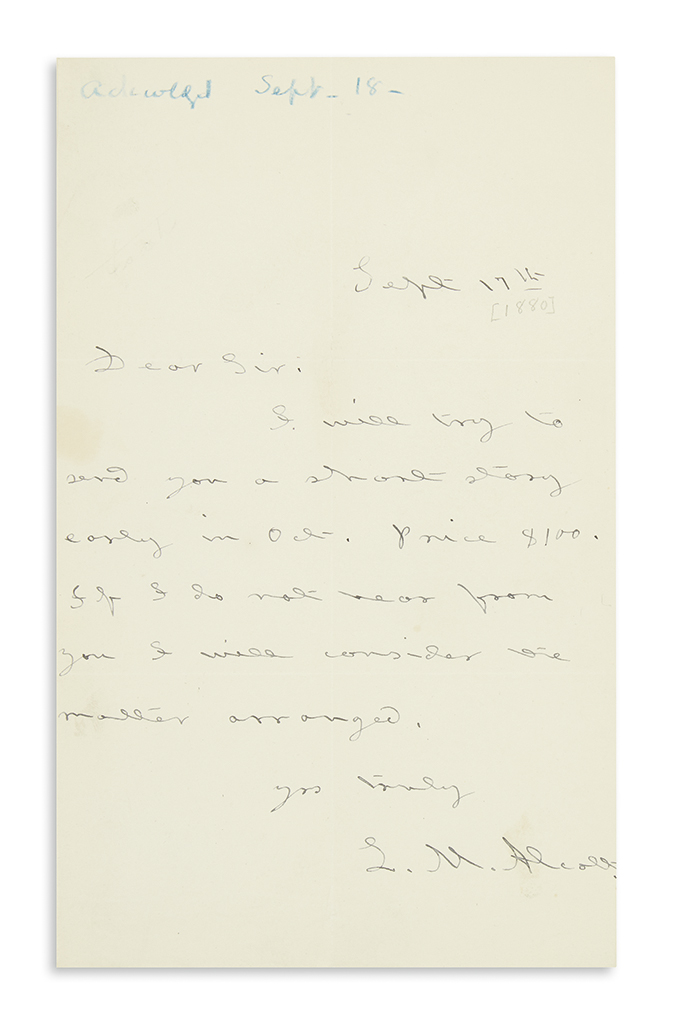 Ackwlgd Sept - 18 -
Sept 17th
[1880]
Dear Sir.
I will try to
send you a short story
early in Oct. Price $100.
If I do not hear from
you I will consider the
matter arranged.
yrs truly
L. M. Alcott.